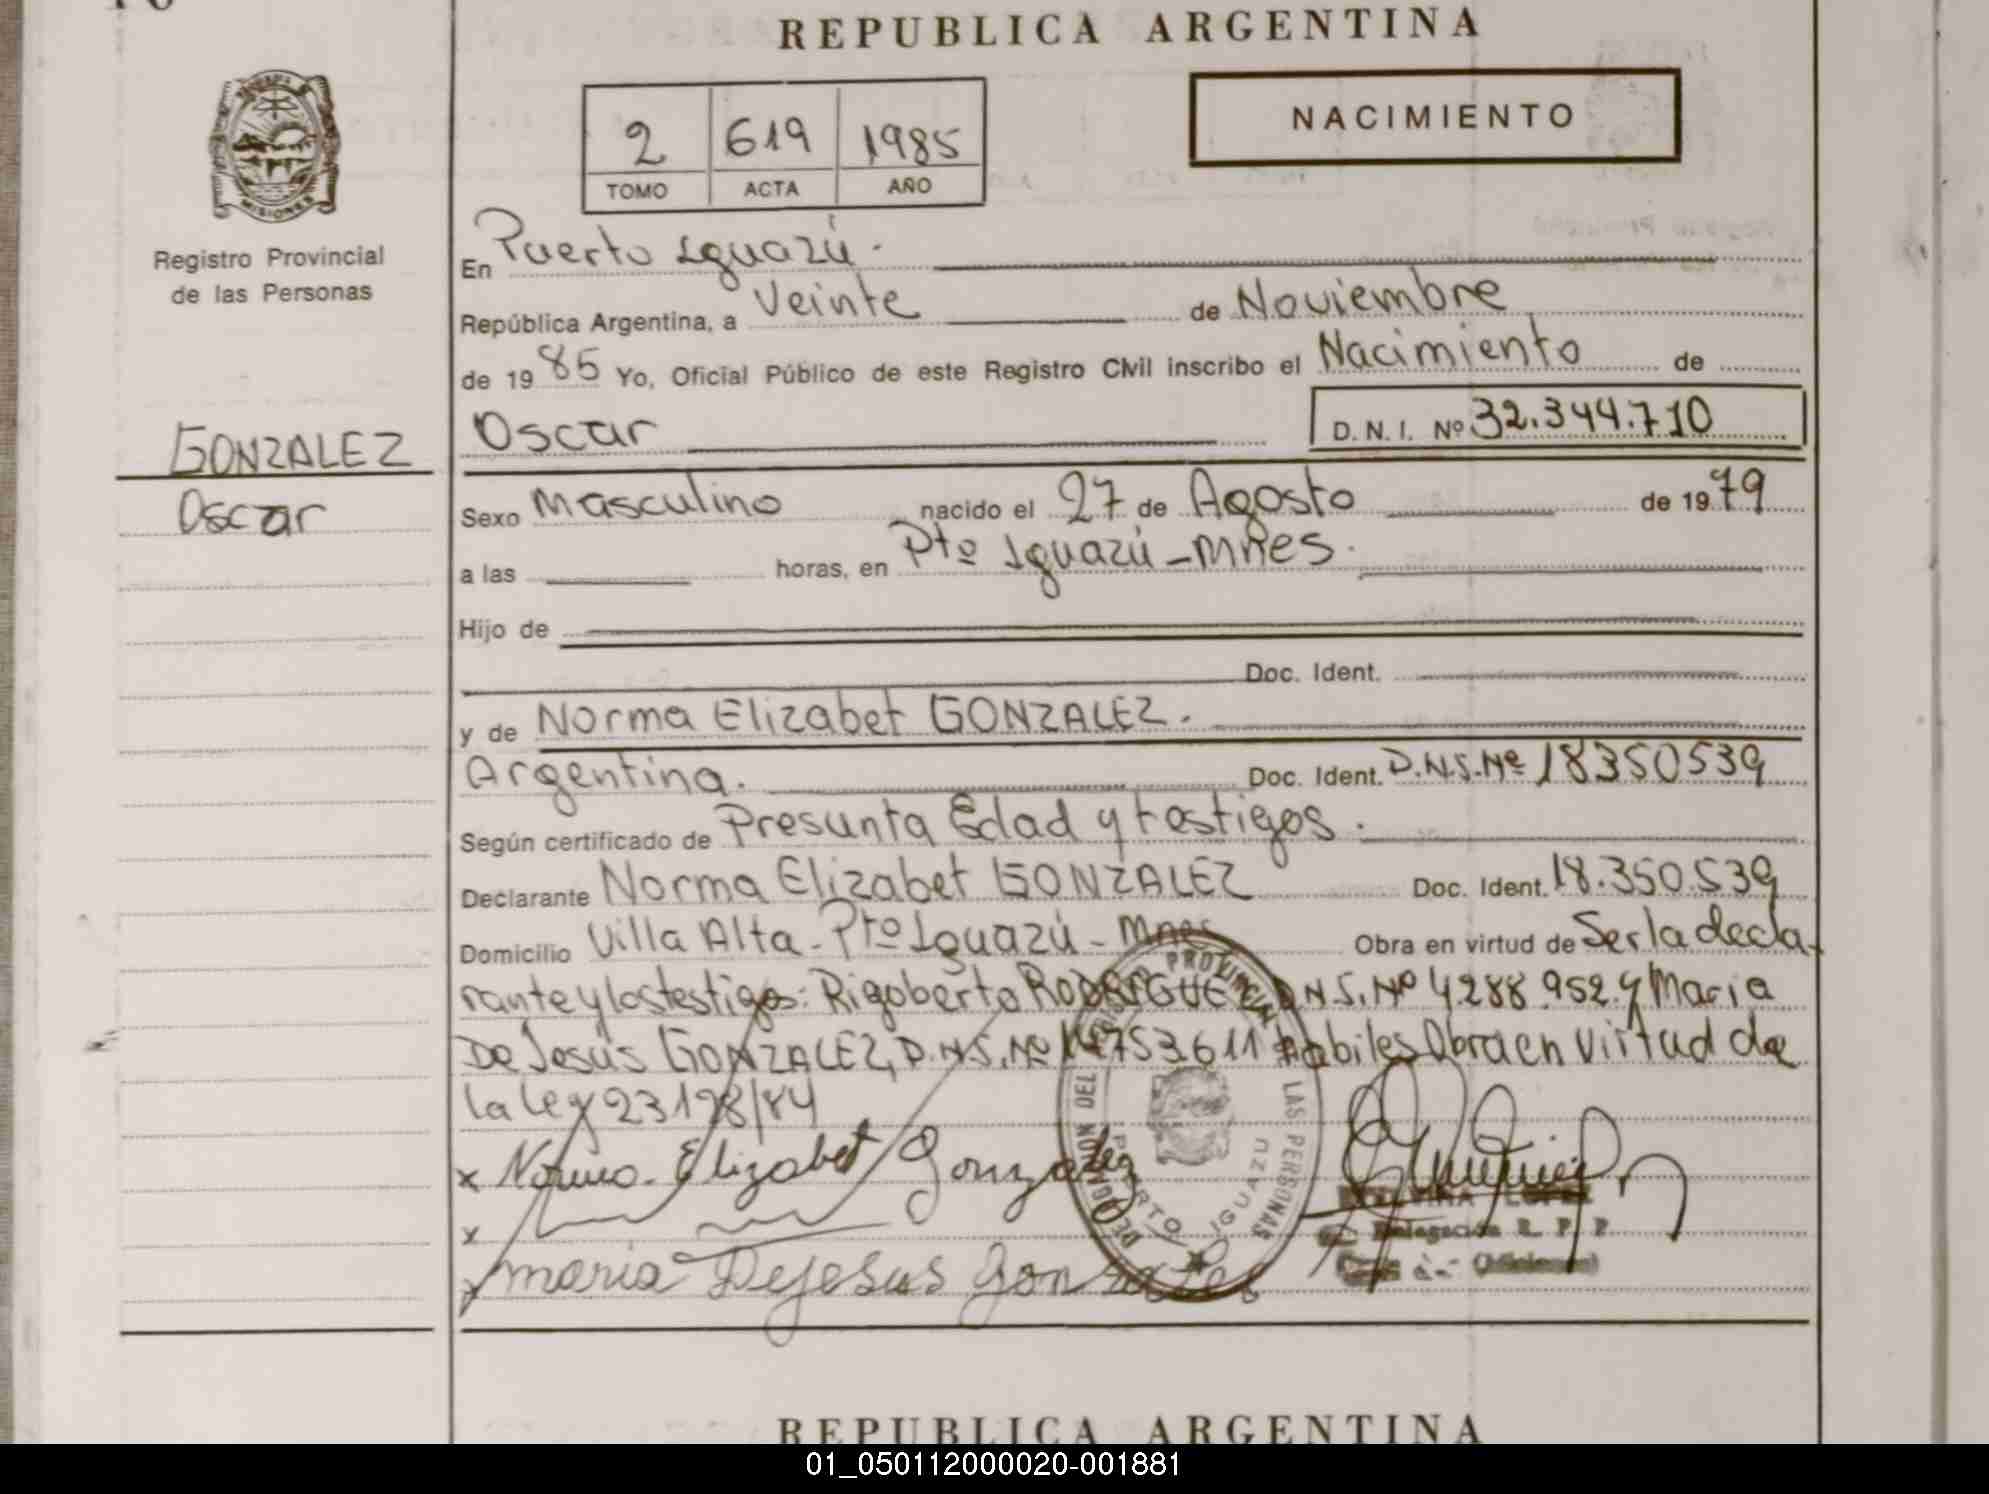 REPUBLICA ARGENTINA
NACIMIENTO
2 619 1985
TOMO ACTA AÑO
MISIONES
Registro Provincial
de las Personas
GONZALEZ
Oscar
En Puerto Iguazú.
República Argentina, a Veinte de Noviembre
de 1985 Yo, Oficial Público de este Registro Civil inscribo el Nacimiento de
Oscar D.N.I. Nº 32.344.710
Sexo Masculino nacido el 27 de Agosto de 1979
a las horas, en Ptº Iguazú - Mnes.
Hijo de
Doc. Ident.
y de Norma Elizabet GONZALEZ.
Argentina. Doc. Ident. D.N.I. Nº 18350539
Según certificado de Presunta Edad y testigos.
Declarante Norma Elizabet GONZALEZ Doc. Ident. 18.350.539
Domicilio Villa Alta - Ptº Iguazú - Mnes Obra en virtud de Ser la decla
rante y los testigos: Rigoberto RODRIGUEZ D.N.I. Nº 4.288.952 y Maria
De Jesús GONZALEZ, D.N.I. Nº 753.611 Habiles Obra en Virtud de
la ley 23128/84
x Norma Elizabet Gonzalez
x
x maria Dejesus Gonzalez
DELEGACION DEL REGISTRO PROVINCIAL DE LAS PERSONAS
PUERTO IGUAZU
LOPEZ
Delegación R. P. P.
(Misiones)
REPUBLICA ARGENTINA
01_050112000020-001881